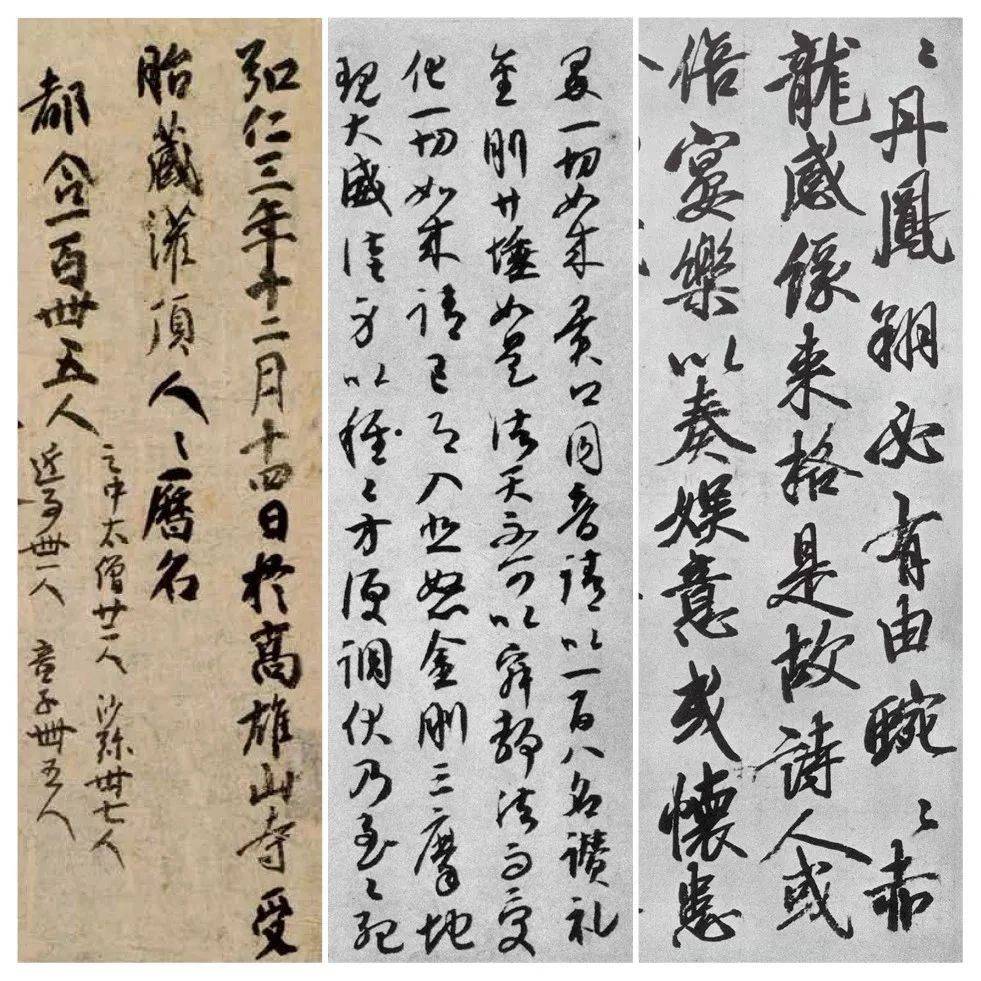 弘仁三年十二月十四日於高雄山寺受
胎蔵灌頂人〻暦名
都合一百卌五人
之中太僧廿二人 沙弥卅七人
近事卌一人 童子卌五人
一切如来異口同音請以一百八名讃礼
金剛廾埵如是諸天不可以寂静法而受
化一切如来請已即入悲怒金剛三摩地
現大威徳身以種〻方便調伏乃至
〻丹鳳翔必有由蜿〻赤
龍感縁来格是故詩人或
倍宴樂以奏娯意或懐患